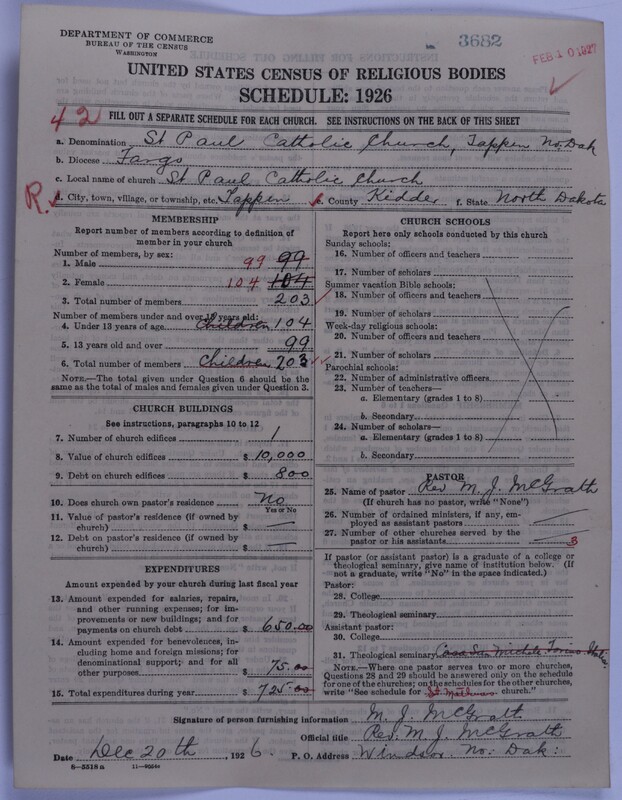 DEPARTMENT OF COMMERCE
BUREAU OF THE CENSUS
WASHINGTON
3682
FEB 10 1927
UNITED STATES CENSUS OF RELIGIOUS BODIES
SCHEDULE: 1926
42 FILL OUT A SEPARATE SCHEDULE FOR EACH CHURCH. SEE INSTRUCTIONS ON THE BACK OF THIS SHEET
a. Denomination St Paul Catholic Church, Tappen No. Dak
b. Diocese Fargo
c. Local name of church St Paul Catholic Church
R. d. City, town, village, or township, etc. Tappen e. County Kidder f. State North Dakota
MEMBERSHIP
Report number of members according to definition of
member in your church
Number of members, by sex:
1. Male 99 99
2. Female 104 104
3. Total number of members 203
Number of members under and over 13 years old:
4. Under 13 years of age Children 104
5. 13 years old and over 99
6. Total number of members Children 203
NOTE.—The total given under Question 6 should be the
same as the total of males and females given under Question 3.
CHURCH BUILDINGS
See instructions, paragraphs 10 to 12
7. Number of church edifices 1
8. Value of church edifices $ 10,000
9. Debt on church edifices $ 800
10. Does church own pastor's residence No
Yes or No
11. Value of pastor's residence (if owned by
church) $ —
12. Debt on pastor's residence (if owned by
church) $ —
EXPENDITURES
Amount expended by your church during last fiscal year
13. Amount expended for salaries, repairs,
and other running expenses; for im-
provements or new buildings; and for
payments on church debt $ 650.00
14. Amount expended for benevolences, in-
cluding home and foreign missions; for
denominational support; and for all
other purposes $ 75.00
15. Total expenditures during year $ 725.00
CHURCH SCHOOLS
Report here only schools conducted by this church
Sunday schools:
16. Number of officers and teachers
17. Number of scholars
Summer vacation Bible schools:
18. Number of officers and teachers
19. Number of scholars
Week-day religious schools:
20. Number of officers and teachers
21. Number of scholars
Parochial schools:
22. Number of administrative officers
23. Number of teachers—
a. Elementary (grades 1 to 8)
b. Secondary
24. Number of scholars—
a. Elementary (grades 1 to 8)
b. Secondary
PASTOR
25. Name of pastor Rev M. J. McGrath
(If church has no pastor, write "None")
26. Number of ordained ministers, if any, em-
ployed as assistant pastors —
27. Number of other churches served by the
pastor or his assistants 3
If pastor (or assistant pastor) is a graduate of a college or
theological seminary, give name of institution below. (If
not a graduate, write "No" in the space indicated.)
Pastor:
28. College
29. Theological seminary
Assistant pastor:
30. College
31. Theological seminary
NOTE.—Where one pastor serves two or more churches,
Questions 28 and 29 should be answered only on the schedule
for one of the churches; on the schedules for the other churches,
write "See schedule for church."
Signature of person furnishing information M. J. McGrath
Official title Rev. M. J. McGrath
Date Dec 20th, 1926. P. O. Address Windsor. No: Dak: